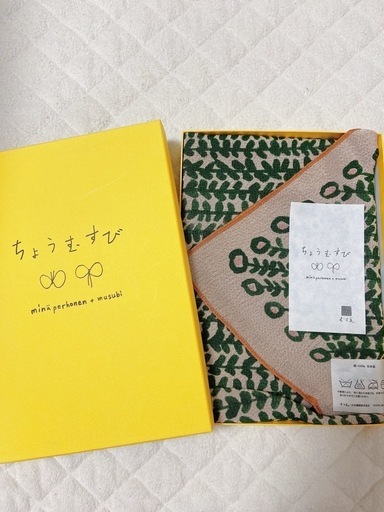 ちょうむすび
minä perhonen + musubi
ちょうむすび
minä perhonen + musubi
むす美
綿100% 日本製